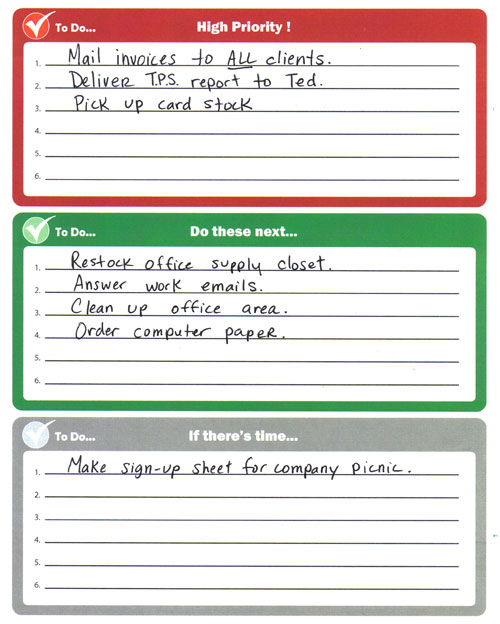 To Do... High Priority !
1. Mail invoices to ALL clients.
2. Deliver T.P.S. report to Ted.
3. Pick up card stock
4.
5.
6.
To Do... Do these next...
1. Restock office supply closet.
2. Answer work emails.
3. Clean up office area.
4. Order computer paper.
5.
6.
To Do... If there's time...
1. Make sign-up sheet for company picnic.
2.
3.
4.
5.
6.